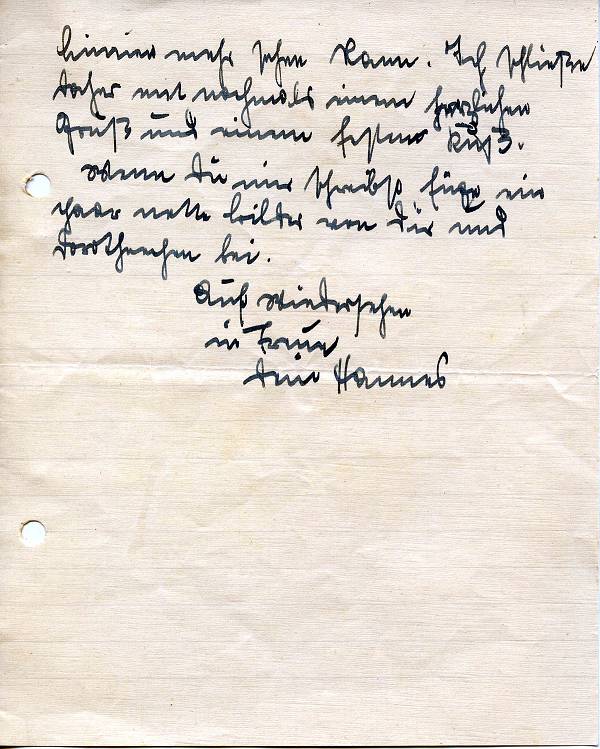 immer mehr sehen kann. Ich schließe
daher mit nochmals einem herzlichen
Gruß und einem festen Kuß.
Wenn Du mir schreibst, füge ein
paar nette Bilder von Dir und
Dorotheechen bei.
Auf Wiedersehen
in Treue
Dein Hannes